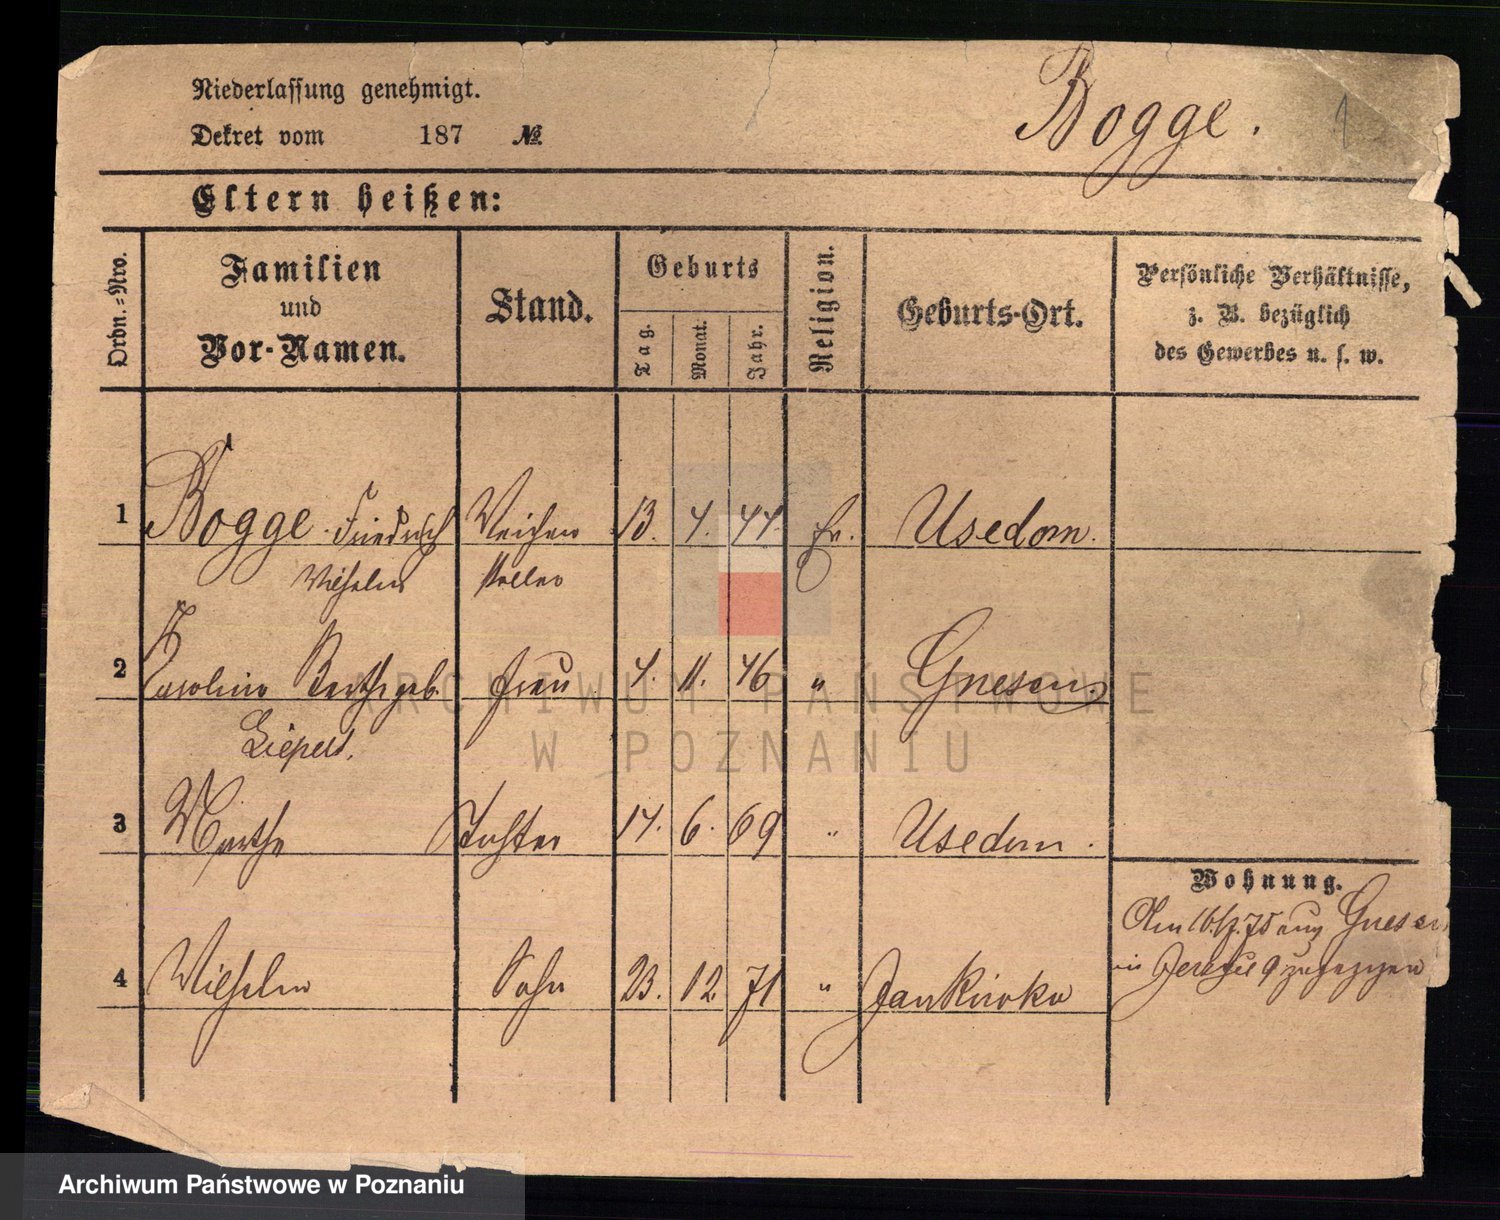 Niederlassung genehmigt.
Bogge. 1
Dekret vom 187 №
Eltern heißen:
Ordn.=Nro.
Familien und Vor-Namen.
Stand.
Geburts
Tag.
Monat.
Jahr.
Religion.
Geburts-Ort.
Persönliche Verhältnisse,
z. B. bezüglich
des Gewerbes u. s. w.
1 Bogge Friedrich Weichen 13. 4. 44. Ev. Usedom.
Wilhelm steller
2 Karoline Berthe geb. Frau 4. 11. 46 " Gnesen.
Liepelt.
3 Marthe Tochter 14. 6. 69 " Usedom.
Wohnung.
Am 16/7.75 aus Gnesen
9 zugezogen
4 Wilhelm Sohn 23. 12. 71 "
ARCHIWUM PAŃSTWOWE
W POZNANIU
Archiwum Państwowe w Poznaniu